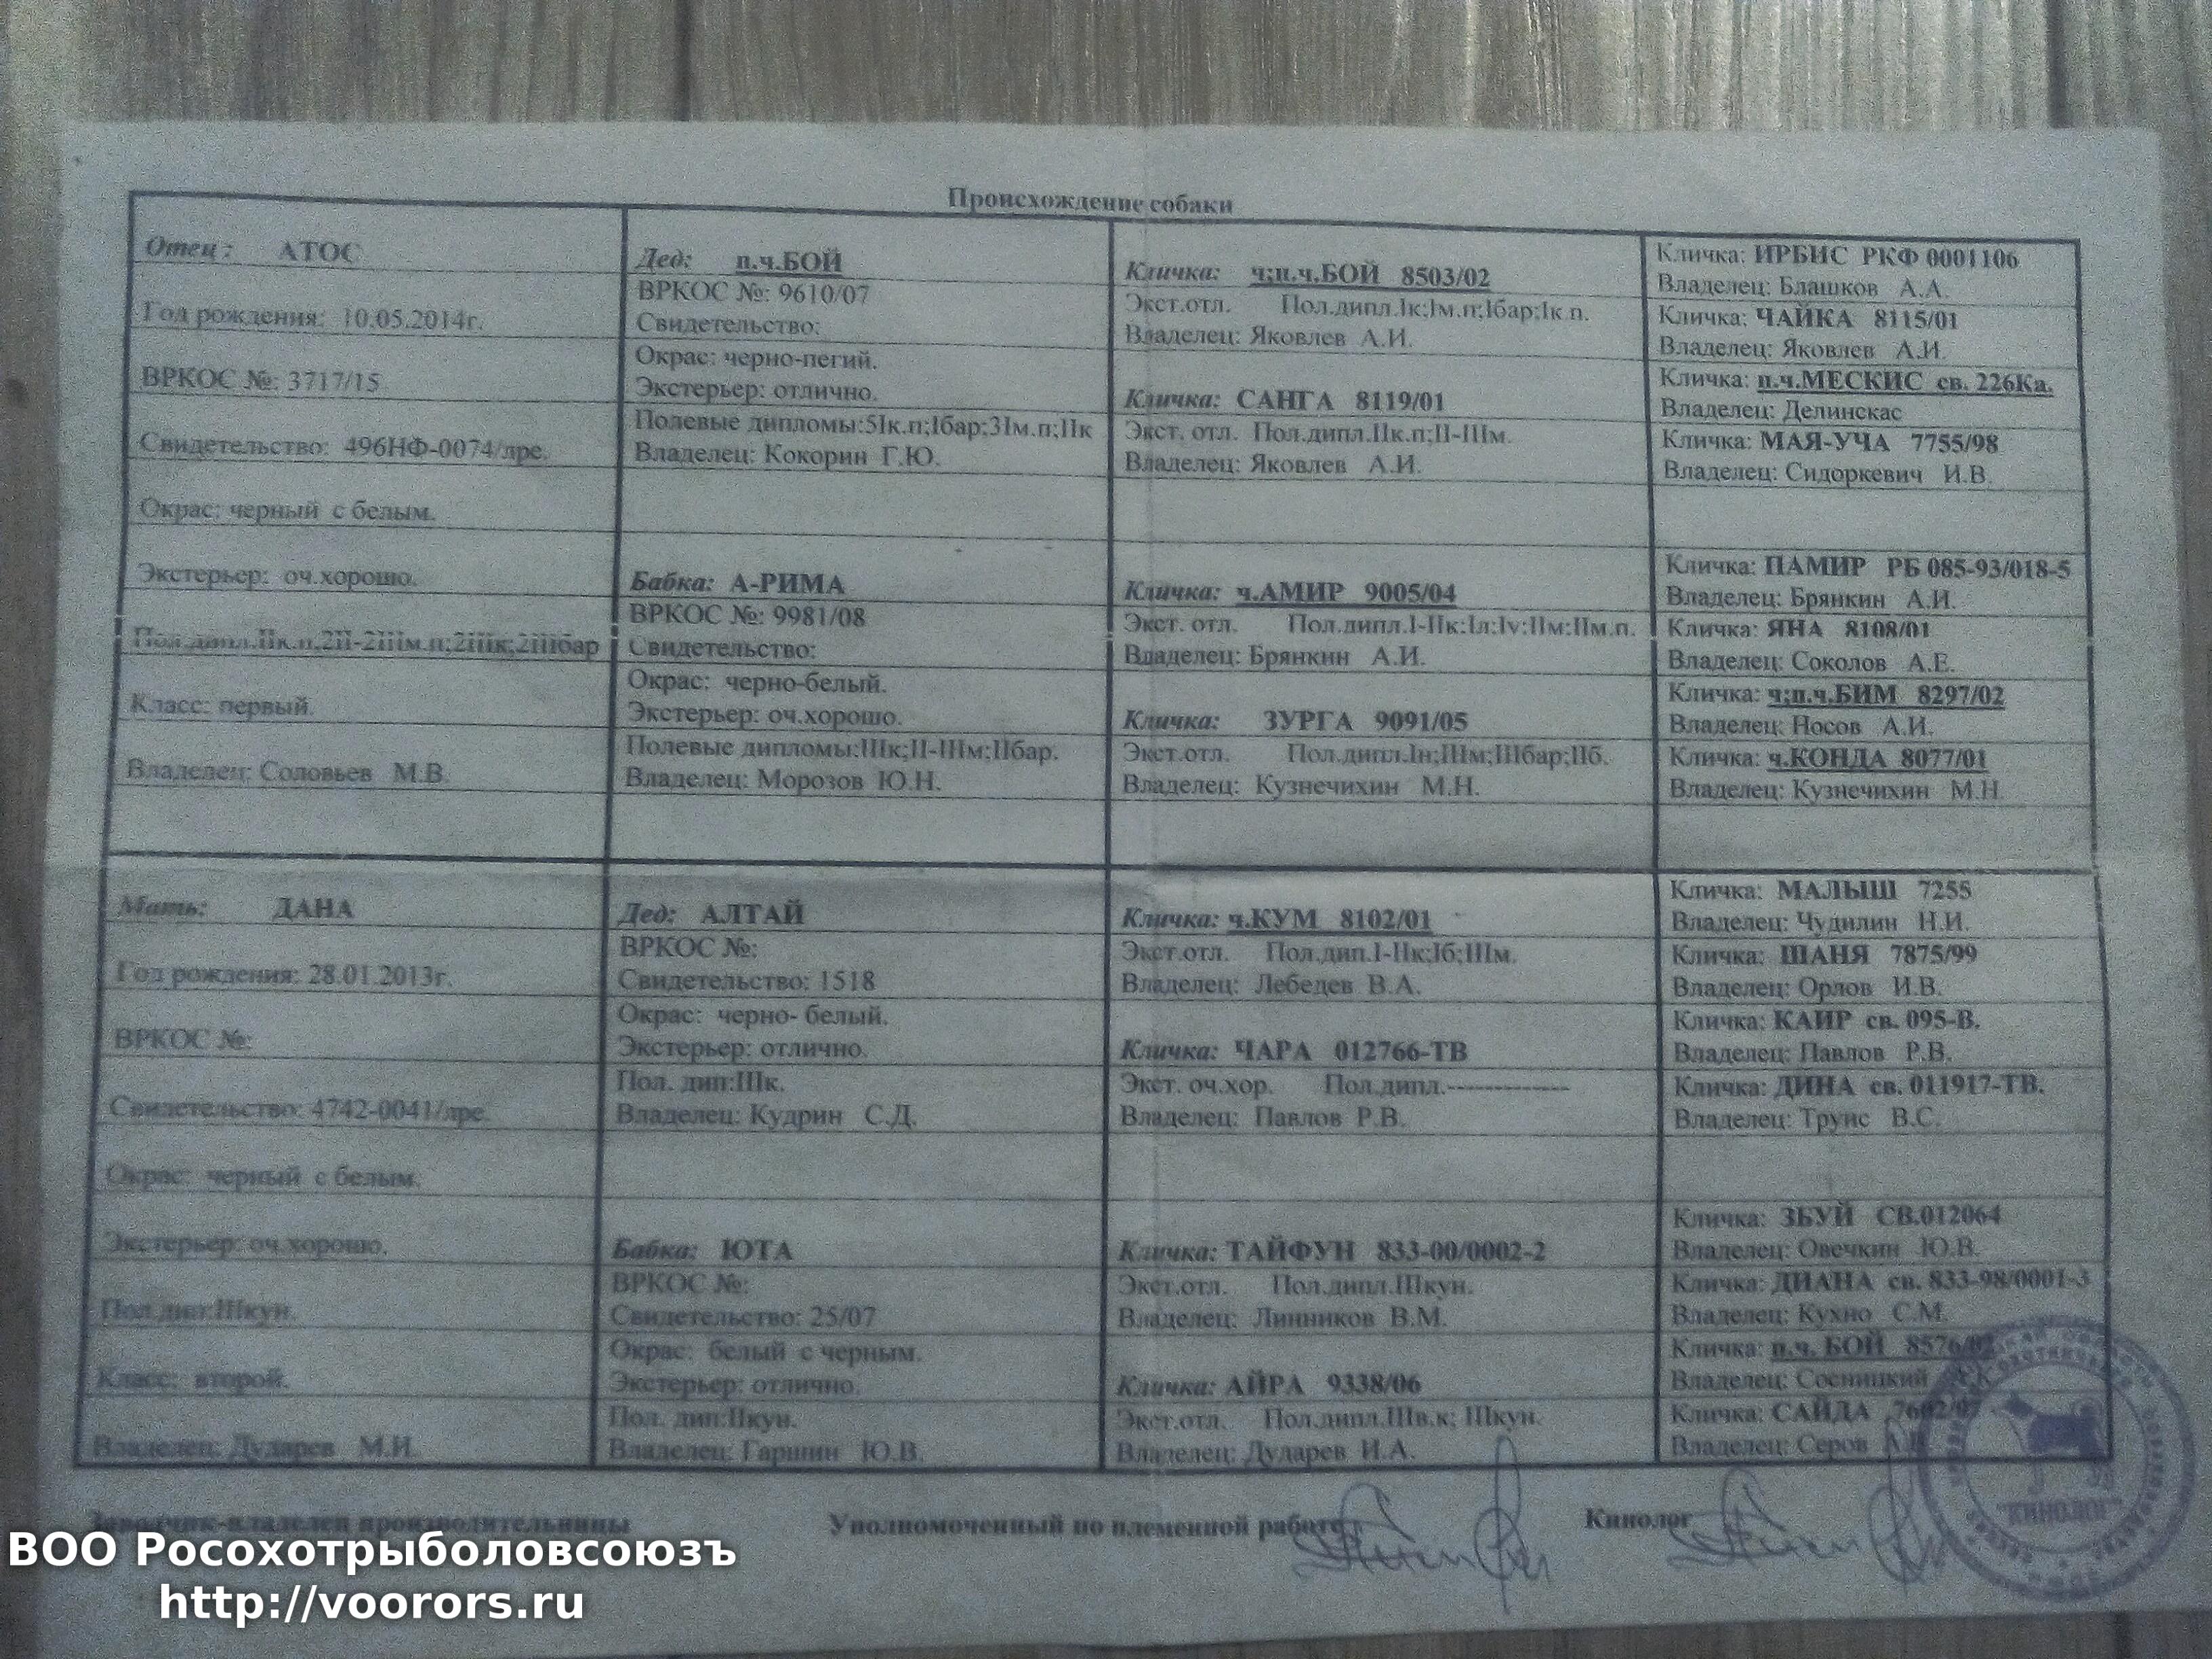 Происхождение собаки
Отец: АТОС
Год рождения: 10.05.2014г.
ВРКОС №: 3717/15
Свидетельство: 496НФ-0074/лре.
Окрас: черный с белым.
Экстерьер: оч.хорошо.
Пол.дипл.IIк.п,2II-2IIIм.п;2IIIк;2IIIбар
Класс: первый.
Владелец: Соловьев М.В.
Дед: п.ч.БОЙ
ВРКОС №: 9610/07
Свидетельство:
Окрас: черно-пегий.
Экстерьер: отлично.
Полевые дипломы:5Iк.п;Iбар;3Iм.п;IIк
Владелец: Кокорин Г.Ю.
Бабка: А-РИМА
ВРКОС №: 9981/08
Свидетельство:
Окрас: черно-белый.
Экстерьер: оч.хорошо.
Полевые дипломы:IIIк;II-IIIм;IIбар.
Владелец: Морозов Ю.Н.
Кличка: ч;п.ч.БОЙ 8503/02
Экст.отл. Пол.дипл.Iк;Iм.п;Iбар;Iк.п.
Владелец: Яковлев А.И.
Кличка: САНГА 8119/01
Экст. отл. Пол.дипл.IIк.п;II-IIIм.
Владелец: Яковлев А.И.
Кличка: ч.АМИР 9005/04
Экст. отл. Пол.дипл.I-IIк;Iл;Iv;IIм;IIм.п.
Владелец: Брянкин А.И.
Кличка: ЗУРГА 9091/05
Экст.отл. Пол.дипл.Iн;IIIм;IIIбар;IIб.
Владелец: Кузнечихин М.Н.
Кличка: ИРБИС РКФ 0001106
Владелец: Блашков А.А.
Кличка: ЧАЙКА 8115/01
Владелец: Яковлев А.И.
Кличка: п.ч.МЕСКИС св. 226Ка.
Владелец: Делинскас
Кличка: МАЯ-УЧА 7755/98
Владелец: Сидоркевич И.В.
Кличка: ПАМИР РБ 085-93/018-5
Владелец: Брянкин А.И.
Кличка: ЯНА 8108/01
Владелец: Соколов А.Е.
Кличка: ч;п.ч.БИМ 8297/02
Владелец: Носов А.И.
Кличка: ч.КОНДА 8077/01
Владелец: Кузнечихин М.Н.
Мать: ДАНА
Год рождения: 28.01.2013г.
ВРКОС №:
Свидетельство: 4742-0041/лре.
Окрас: черный с белым.
Экстерьер: оч.хорошо.
Пол.дип:IIIкун.
Класс: второй.
Владелец: Дударев М.И.
Дед: АЛТАЙ
ВРКОС №:
Свидетельство: 1518
Окрас: черно- белый.
Экстерьер: отлично.
Пол. дип:IIIк.
Владелец: Кудрин С.Д.
Бабка: ЮТА
ВРКОС №:
Свидетельство: 25/07
Окрас: белый с черным.
Экстерьер: отлично.
Пол. дип:IIкун.
Владелец: Гаршин Ю.В.
Кличка: ч.КУМ 8102/01
Экст.отл. Пол.дип.I-IIк;Iб;IIIм.
Владелец: Лебедев В.А.
Кличка: ЧАРА 012766-ТВ
Экст. оч.хор. Пол.дипл.-------------
Владелец: Павлов Р.В.
Кличка: ТАЙФУН 833-00/0002-2
Экст.отл. Пол.дипл.IIIкун.
Владелец: Линников В.М.
Кличка: АЙРА 9338/06
Экст.отл. Пол.дипл.IIIв.к; IIIкун.
Владелец: Дударев И.А.
Кличка: МАЛЫШ 7255
Владелец: Чудилин Н.И.
Кличка: ШАНЯ 7875/99
Владелец: Орлов И.В.
Кличка: КАИР св. 095-В.
Владелец: Павлов Р.В.
Кличка: ДИНА св. 011917-ТВ.
Владелец: Труис В.С.
Кличка: ЗБУЙ СВ.012064
Владелец: Овечкин Ю.В.
Кличка: ДИАНА св. 833-98/0001-3
Владелец: Кухно С.М.
Кличка: п.ч. БОЙ
Владелец: Сосницкий
Кличка: САЙДА
Владелец: Серов
Заводчик-владелец производительницы Уполномоченный по племенной работе Кинолог
"КИНОЛОГ"
ВОО Росохотрыболовсоюзъ
http://voorors.ru